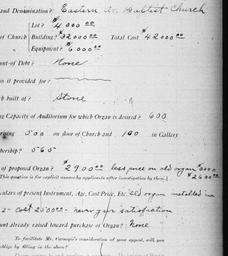 and Denomination? Eastern Av. Baptist Church
Lot? $4000.00
of Church Building? $32000.00 Total Cost $42000.00
Equipment? $6000.00
unt of Debt? None
is it provided for?
ch built of? Stone
ng Capacity of Auditorium for which Organ is desired? 600
rising 500 on floor of Church and 100 in Gallery
mbership? 565
of proposed Organ? $2900.00 less price on old organ
$2600.00
(This question is for explicit answer by applicants after investigation by them.)
ulars of present Instrument, Age, Cost Price, Etc. Old organ installed in
cost 2500.00 - never gave satisfaction
unt already raised toward purchase of Organ? None
To facilitate Mr. Carnegie's consideration of your appeal, will you